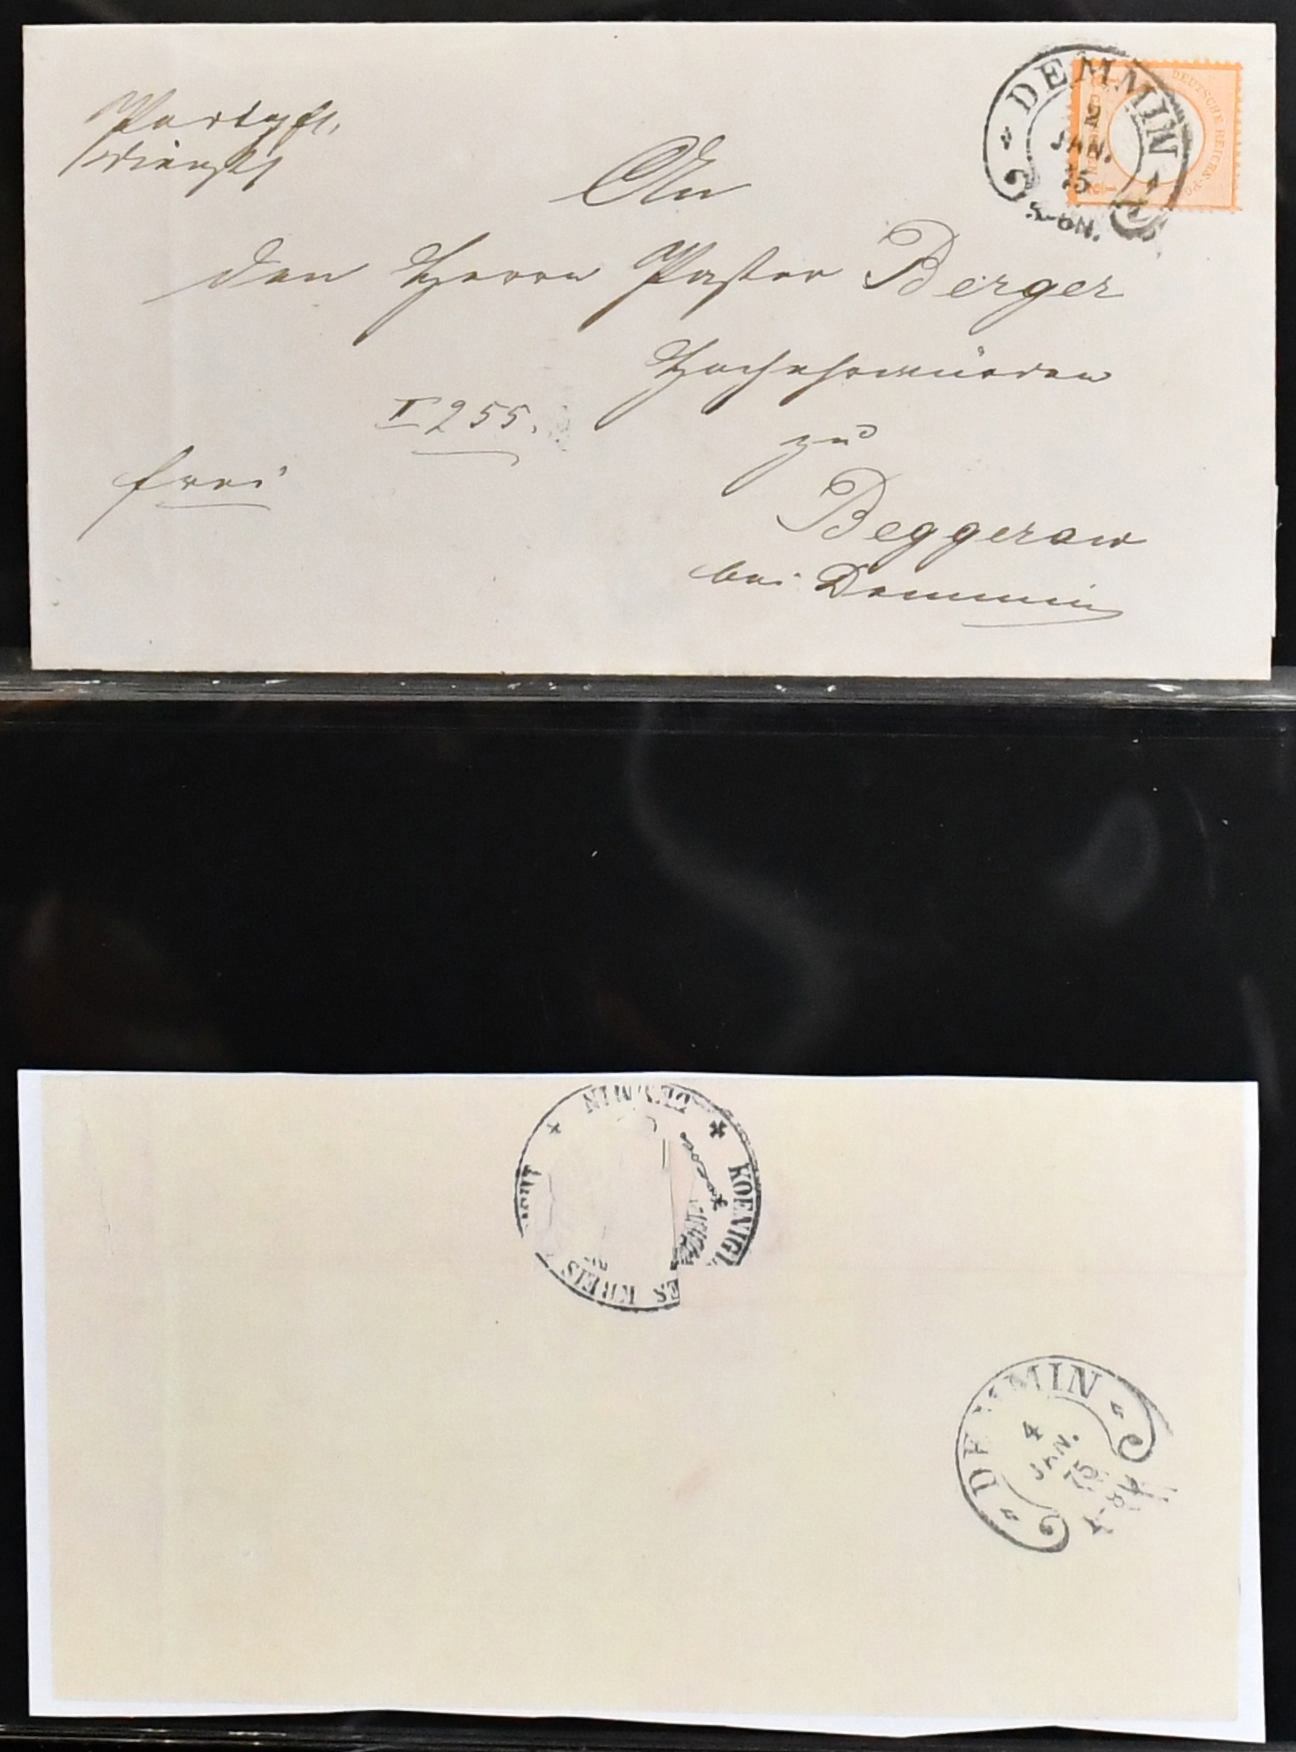 Portopfl.
Dienst
DEMMIN
2
JAN.
75
5-6N.
DEUTSCHE REICHS-PO
An
den Herrn Pastor Berger
Hochehrwürden
I 255.
zu
frei
Beggerow
bei Demmin
DEMMIN
KOENIGL
ES KREIS
ICHT
DEMMIN
4
JAN.
75